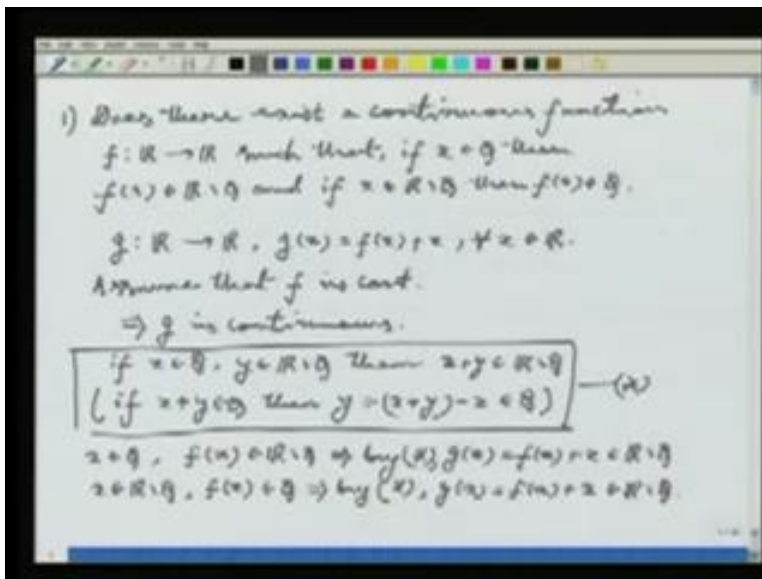 1) Does there exist a continuous function
f: ℝ → ℝ such that, if x ∈ ℚ then
f(x) ∈ ℝ\ℚ and if x ∈ ℝ\ℚ then f(x) ∈ ℚ.
g: ℝ → ℝ, g(x) = f(x) + x, ∀ x ∈ ℝ.
Assume that f is cont.
⇒ g is continuous.
if x ∈ ℚ, y ∈ ℝ\ℚ then x+y ∈ ℝ\ℚ
(if x+y ∈ ℚ then y = (x+y) - x ∈ ℚ) —(*)
x ∈ ℚ, f(x) ∈ ℝ\ℚ ⇒ by (*), g(x) = f(x) + x ∈ ℝ\ℚ
x ∈ ℝ\ℚ, f(x) ∈ ℚ ⇒ by (*), g(x) = f(x) + x ∈ ℝ\ℚ.